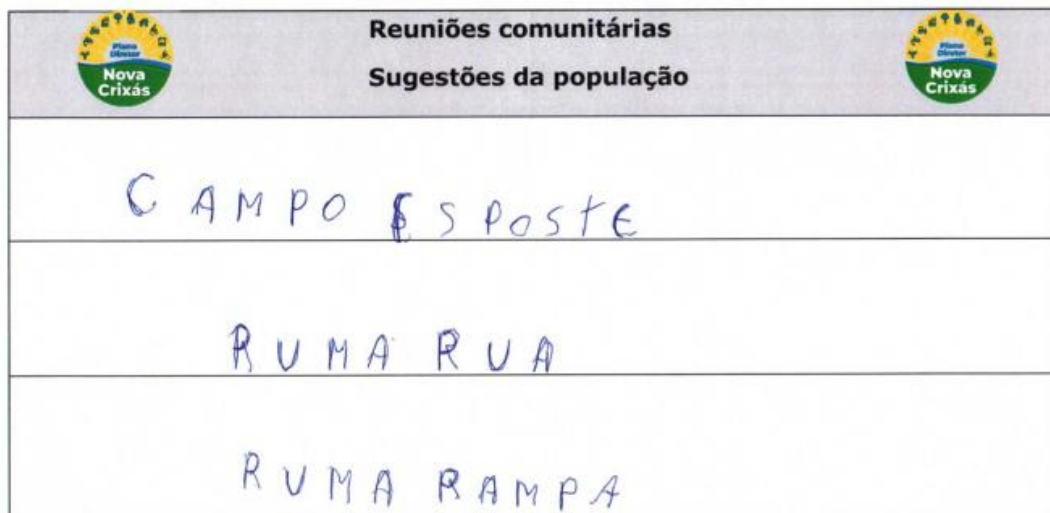 Plano
Diretor
Nova
Crixás
Reuniões comunitárias
Sugestões da população
Plano
Diretor
Nova
Crixás
CAMPO ESPOSTE
RUMA RUA
RUMA RAMPA